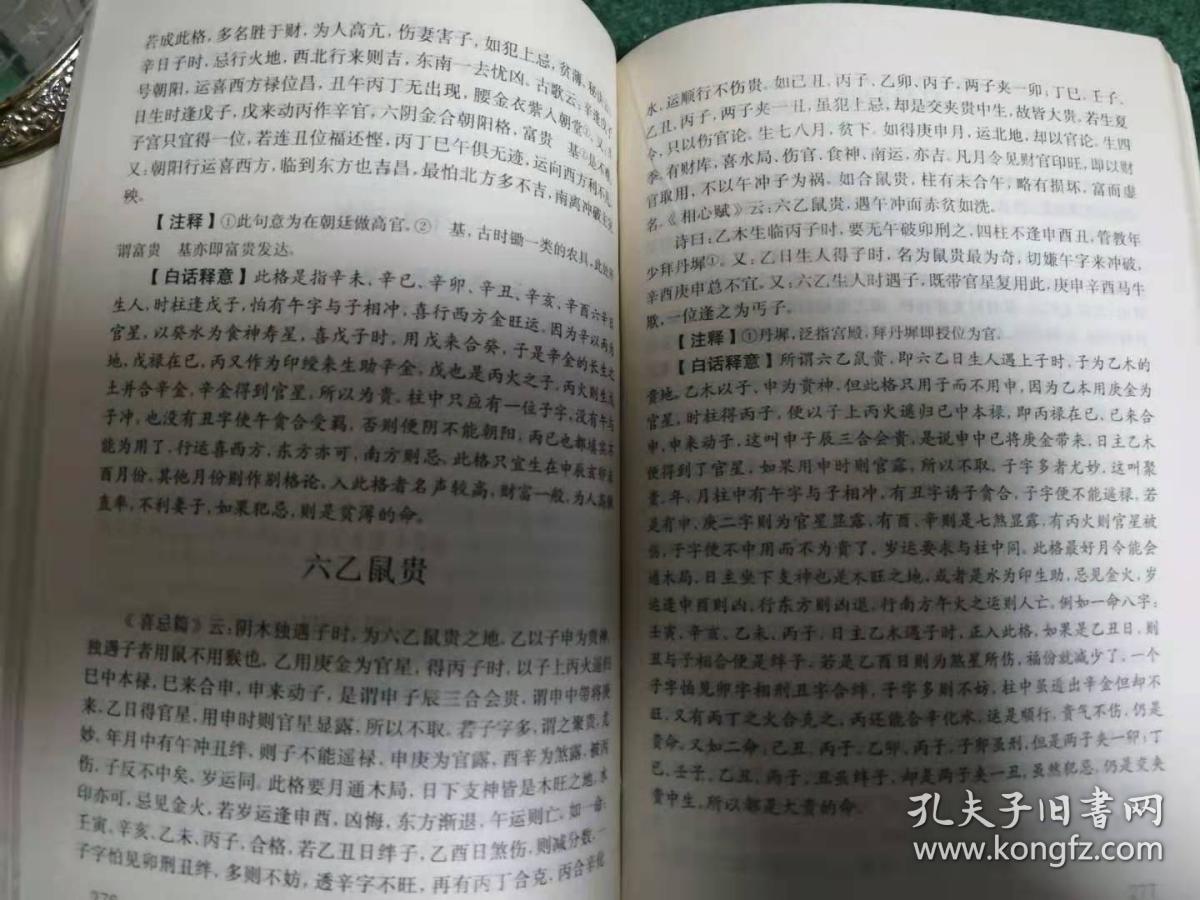 若成此格，多名胜于财，为人高亢，伤妻害子，如犯上忌，贫薄，
辛日子时，忌行火地，西北行来则吉，东南一去忧凶。古歌云：辛逢戊子
号朝阳，运喜西方禄位昌，丑午丙丁无出现，腰金衣紫入朝堂①。
日生时逢戊子，戊来动丙作辛官，六阴金合朝阳格，富贵 基②是不
子宫只宜得一位，若连丑位福还悭，丙丁巳午俱无迹，运向西方利不
又：朝阳行运喜西方，临到东方也吉昌，最怕北方多不吉，南离冲破主
殃。
【注释】①此句意为在朝廷做高官。② 基，古时锄一类的农具，此处
谓富贵 基亦即富贵发达。
【白话释意】此格是指辛未、辛巳、辛卯、辛丑、辛亥、辛酉六辛日
生人，时柱逢戊子，怕有午字与子相冲，喜行西方金旺运。因为辛以丙为
官星，以癸水为食神寿星，喜戊子时，用戊来合癸，子是辛金的长生之
地，戊禄在巳，丙又作为印绶来生助辛金，戊也是丙火之子，丙火则生戊
土并合辛金，辛金得到官星，所以为贵。柱中只应有一位子字，没有午与
子冲，也没有丑字使午贪合受羁，否则便阴不能朝阳，丙巳也都填实不
能为用了。行运喜西方，东方亦可，南方则忌。此格只宜生在申辰亥卯未
酉月份，其他月份则作别格论。入此格者名声较高，财富一般，为人高傲
直率，不利妻子，如果犯忌，则是贫薄的命。
六乙鼠贵
《喜忌篇》云：阴木独遇子时，为六乙鼠贵之地。乙以子申为贵神，
独遇子者用鼠不用猴也。乙用庚金为官星，得丙子时，以子上丙火遥归
巳中本禄，巳来合申，申来动子，是谓申子辰三合会贵，谓申中带将庚
来，乙日得官星，用申时则官星显露，所以不取。若子字多，谓之聚贵，尤
妙。年月中有午冲丑绊，则子不能遥禄，申庚为官露，酉辛为煞露，被丙
伤，子反不中矣。岁运同。此格要月通木局，日下支神皆是木旺之地，水
印亦可，忌见金火，若岁运逢申酉，凶悔，东方渐退，午运则亡。如一命：
壬寅、辛亥、乙未、丙子，合格，若乙丑日绊子，乙酉日煞伤，则减分数，一
子字怕见卯刑丑绊，多则不妨，透辛字不旺，再有丙丁合克，丙合辛化
276
水，运顺行不伤贵。如己丑、丙子、乙卯、丙子，两子夹一卯；丁巳、壬子、
乙丑、丙子，两子夹一丑，虽犯上忌，却是交夹贵中生，故皆大贵。若生夏
令，只以伤官论。生七八月，贫下。如得庚申月，运北地，却以官论。生四
季，有财库，喜水局、伤官、食神、南运，亦吉。凡月令见财官印旺，即以财
官取用，不以午冲子为祸。如合鼠贵，柱有未合午，略有损坏，富而虚
名。《相心赋》云：六乙鼠贵，遇午冲而赤贫如洗。
诗曰：乙木生临丙子时，要无午破卯刑之，四柱不逢申酉丑，管教年
少拜丹墀①。又：乙日生人得子时，名为鼠贵最为奇，切嫌午字来冲破，
辛酉庚申总不宜。又：六乙生人时遇子，既带官星复用此，庚申辛酉马牛
欺，一位逢之为丐子。
【注释】①丹墀，泛指宫殿，拜丹墀即授位为官。
【白话释意】所谓六乙鼠贵，即六乙日生人遇上子时，子为乙木的
贵地。乙木以子、申为贵神，但此格只用子而不用申，因为乙本用庚金为
官星，时柱得丙子，便以子上丙火遥归巳中本禄，即丙禄在巳，巳来合
申，申来动子，这叫申子辰三合会贵，是说申中已将庚金带来，日主乙木
便得到了官星，如果用申时则官露，所以不取。子字多者尤妙，这叫聚
贵。年、月柱中有午字与子相冲，有丑字诱子贪合，子字便不能遥禄。若
是有申、庚二字则为官星显露，有酉、辛则是七煞显露，有丙火则官星被
伤，子字便不中用而不为贵了。岁运要求与柱中同。此格最好月令能会
通木局，日主坐下支神也是木旺之地，或者是水为印生助，忌见金火，岁
运逢申酉则凶，行东方则凶退，行南方午火之运则人亡。例如一命八字：
壬寅、辛亥、乙未、丙子，日主乙木遇子时，正入此格，如果是乙丑日，则
丑与子相合便是绊子，若是乙酉日则为煞星所伤，福份就减少了。一个
子字怕见卯字相刑丑字合绊，子字多则不妨，柱中虽透出辛金但却不
旺，又有丙丁之火合克之，丙还能合辛化水，运是顺行，贵气不伤，仍是
贵命。又如二命：己丑、丙子、乙卯、丙子，子卯虽刑，但是两子夹一卯；丁
巳、壬子、乙丑、丙子，丑虽绊子，却是两子夹一丑，虽然犯忌，仍是交夹
贵中生，所以都是大贵的命。
277
孔夫子旧书网
www.kongfz.com